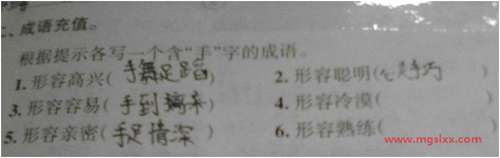 二、成语充值。
根据提示各写一个含“手”字的成语。
1. 形容高兴(手舞足蹈) 2. 形容聪明(心灵手巧)
3. 形容容易(手到擒来) 4. 形容冷漠( )
5. 形容亲密(手足情深) 6. 形容熟练( )
www.mgslxx.com